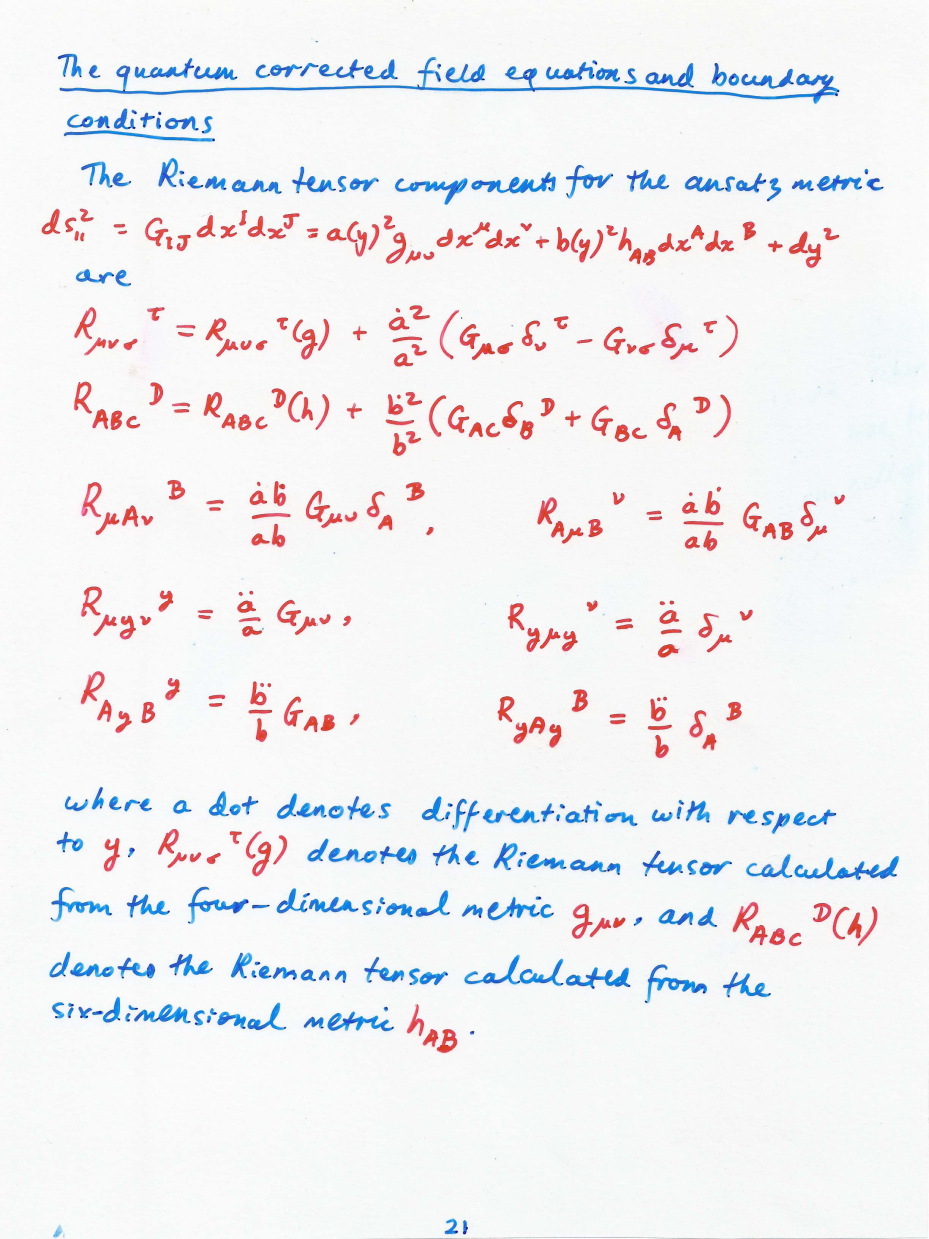 The quantum corrected field equations and boundary
conditions
The Riemann tensor components for the ansatz metric
ds₁₁² = G_{IJ} dx^I dx^J = a(y)² g_{μν} dx^μ dx^ν + b(y)² h_{AB} dx^A dx^B + dy²
are
R_{μνσ}^τ = R_{μνσ}^τ(g) + ȧ²/a² (G_{μσ} δ_ν^τ − G_{νσ} δ_μ^τ)
R_{ABC}^D = R_{ABC}^D(h) + ḃ²/b² (G_{AC} δ_B^D + G_{BC} δ_A^D)
R_{μAν}^B = ȧḃ/ab G_{μν} δ_A^B, R_{AμB}^ν = ȧḃ/ab G_{AB} δ_μ^ν
R_{μyν}^y = ä/a G_{μν}, R_{yμy}^ν = ä/a δ_μ^ν
R_{AyB}^y = b̈/b G_{AB}, R_{yAy}^B = b̈/b δ_A^B
where a dot denotes differentiation with respect
to y, R_{μνσ}^τ(g) denotes the Riemann tensor calculated
from the four-dimensional metric g_{μν}, and R_{ABC}^D(h)
denotes the Riemann tensor calculated from the
six-dimensional metric h_{AB}.
21